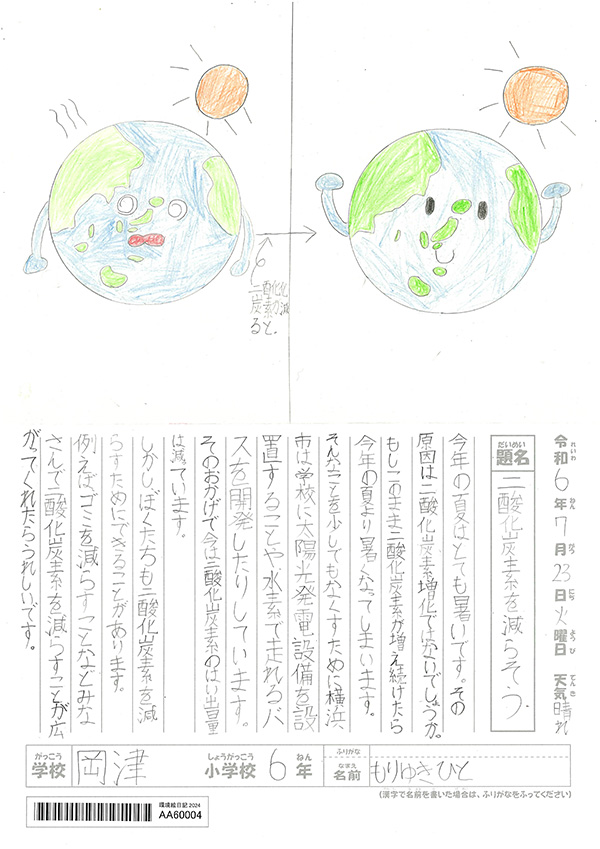 二酸化
炭素が減
ると、
令和6年7月23日火曜日 天気晴れ
れいわ ねん がつ にち ようび てんき
だいめい
題名 二酸化炭素を減らそう
今年の夏はとても暑いです。その
原因は二酸化炭素増化ではないでしょうか。
もしこのまま二酸化炭素が増え続けたら
今年の夏より暑くなってしまいます。
そんなことを少しでもなくすために横浜
市は学校に太陽光発電設備を設
置することや水素で走れるバ
スを開発したりしています。
そのおかげで今は二酸化炭素のはい出量
は減っています。
しかし、ぼくたちも二酸化炭素を減
らすためにできることがあります。
例えばゴミを減らすことなどみな
さんで二酸化炭素を減らすことが広
がってくれたらうれしいです。
がっこう しょうがっこう ねん ふりがな
学校 岡津 小学校 6年 なまえ 名前 もりゆきひと
(漢字で名前を書いた場合は、ふりがなをふってください)
環境絵日記2024
AA60004